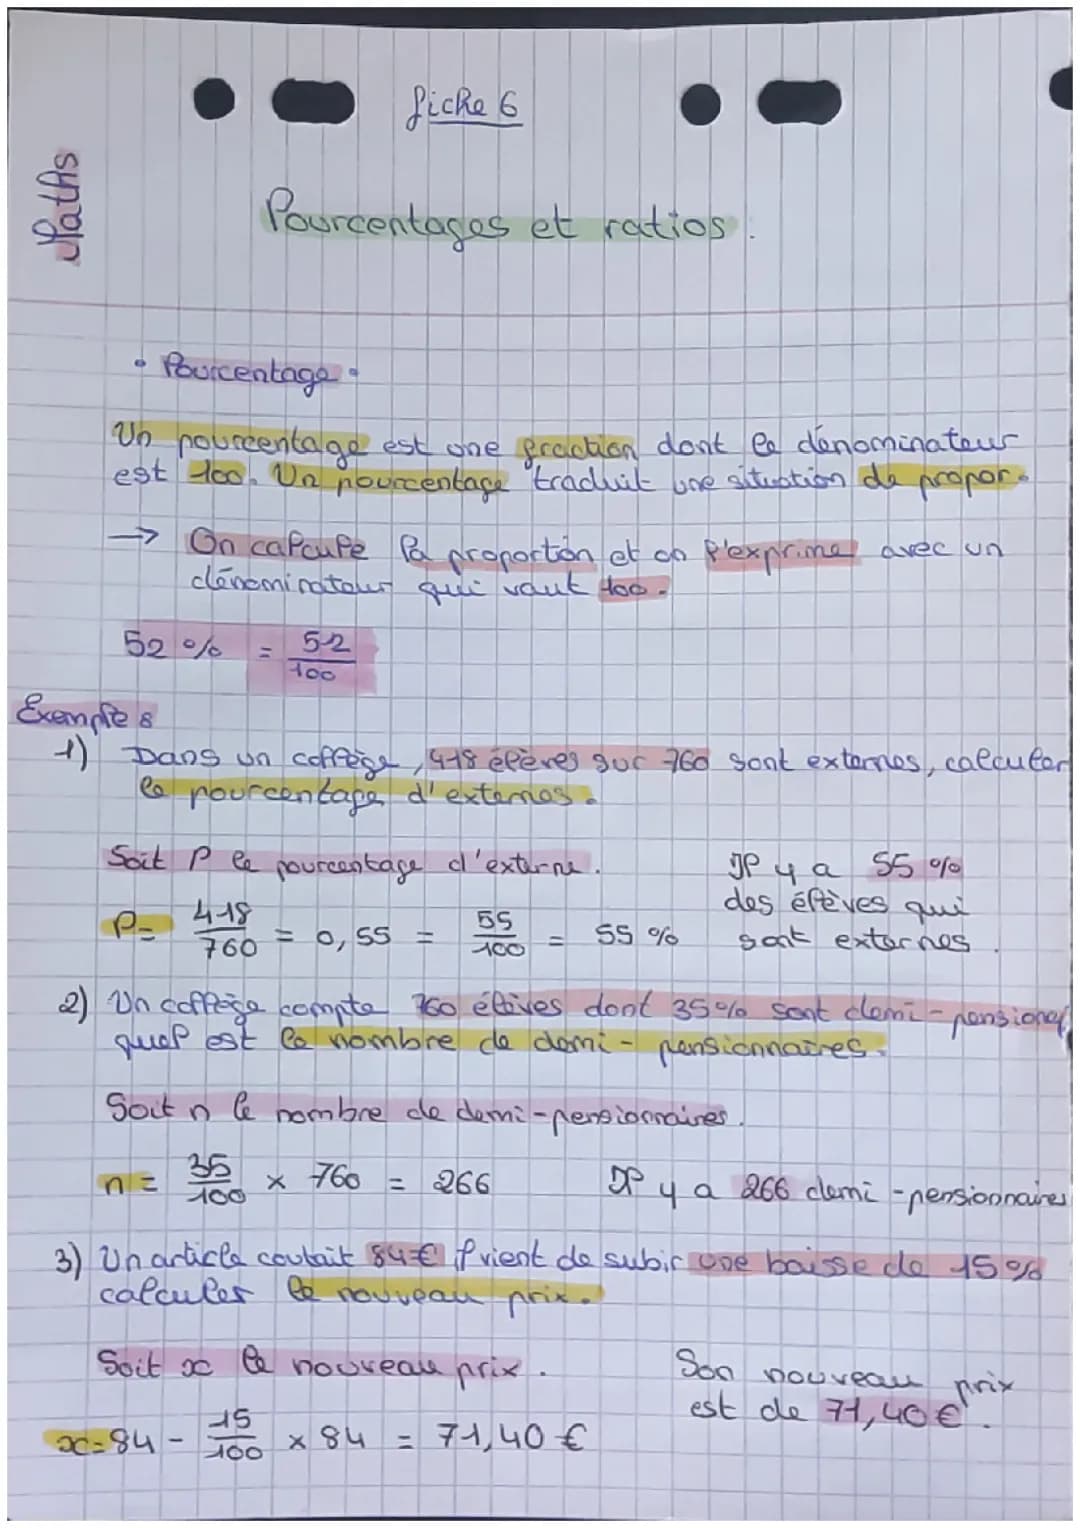 Maths
fiche 6
Pourcentages et ratios.
• Pourcentage •
Un pourcentage est une fraction dont le dénominateur
est 100. Un pourcentage traduit une situation de propor.
→ On calcule la proportion et on l'exprime avec un
dénominateur qui vaut 100.
52 % = 52/100
Exemple :
1) Dans un collège, 418 élèves sur 760 sont externes, calculer
le pourcentage d'externes.
Soit P le pourcentage d'externe.
P = 418/760 = 0,55 = 55/100 = 55 %
Il y a 55 %
des élèves qui
sont externes.
2) Un collège compte 760 élèves dont 35% sont demi-pensionn
quel est le nombre de demi-pensionnaires.
Soit n le nombre de demi-pensionnaires.
n = 35/100 × 760 = 266
Il y a 266 demi-pensionnaires
3) Un article coutait 84€ il vient de subir une baisse de 15%
calculer le nouveau prix.
Soit x le nouveau prix.
x = 84 - 15/100 × 84 = 71,40 €
Son nouveau prix
est de 71,40€.